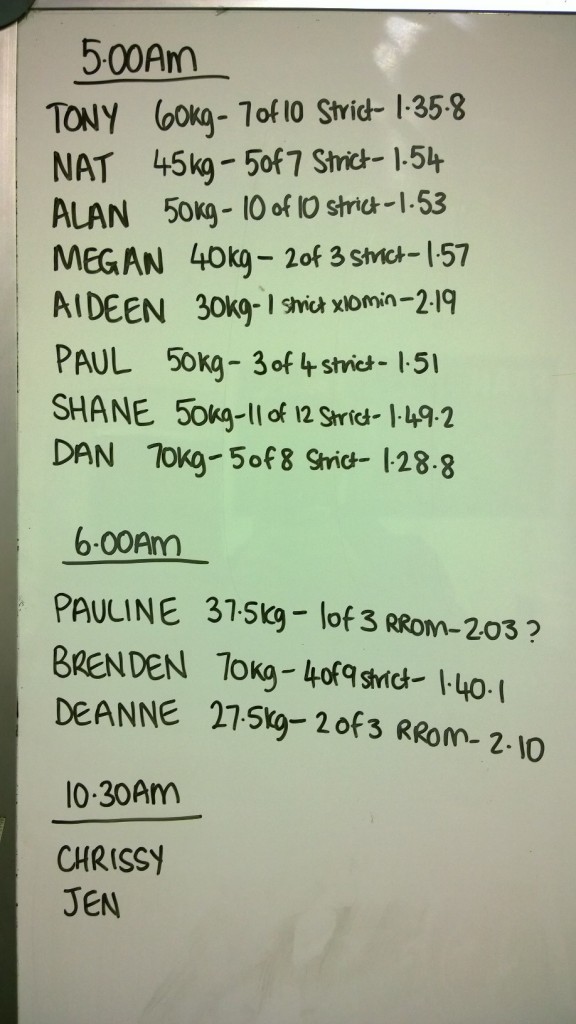 5.00Am
TONY 60kg- 7 of 10 Strict- 1.35.8
NAT 45kg - 5 of 7 Strict- 1.54
ALAN 50kg - 10 of 10 strict - 1.53
MEGAN 40kg - 2 of 3 strict - 1.57
AIDEEN 30kg- 1 strict x10min - 2.19
PAUL 50kg - 3 of 4 strict - 1.51
SHANE 50kg-11 of 12 Strict- 1.49.2
DAN 70kg - 5 of 8 Strict- 1.28.8
6.00Am
PAULINE 37.5kg - 1 of 3 RROM- 2.03 ?
BRENDEN 70kg - 4 of 9 strict- 1.40.1
DEANNE 27.5kg- 2 of 3 RROM- 2.10
10.30Am
CHRISSY
JEN